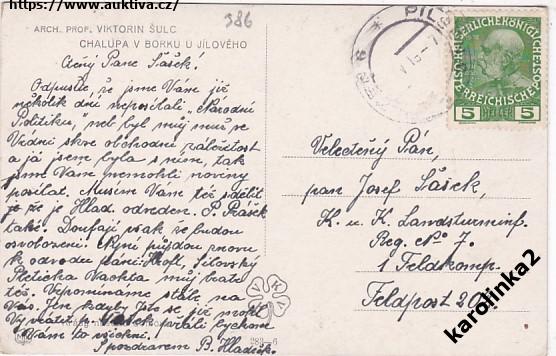 https://www.auktiva.cz/
386
ARCH. PROF. VIKTORIN ŠULC
CHALUPA V BORKU U JÍLOVÉHO
Ctěný Pane Šašek!
Odpusťte, že jsme Vám již
několik dní neposílali „Národní
Politiku," neb byl můj muž ve
Vídni skrz obchodní záležitost
a já jsem byla s ním, tak
jsme Vám nemohli noviny
posílat. Musím Vám též sdělit
že je Hlad. odveden. P. Prášek
také. Doufají však že budou
osvobozeni. Nyní půjdou znovu
k odvodu páni: Jílovský
Pletička Vachta můj bratr
též. Vzpomínáme stále na
Vás. Jen kdyby
Vám to všichni.
S pozdravem B. Hladík.
KVK
283-6
PIL
5 HELLER 5
KAISERLICHE KÖNIGLICHE
ÖSTERREICHISCHE POST
Velectěný Pán,
pan Josef Šášek,
K. u. K. Landsturminf.
Reg. No 7.
1 Feldkomp.
Feldpost 20
karolinka2